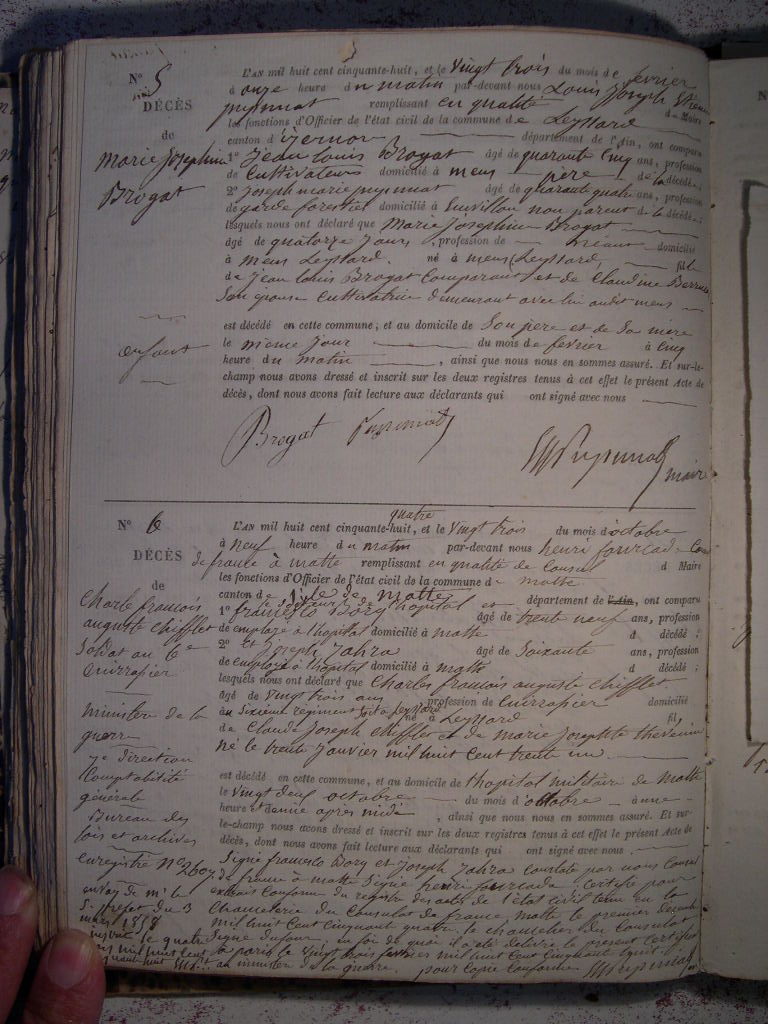 N° 5
DÉCÈS
de
Marie Josephine
Brogat
enfant
L'AN mil huit cent cinquante-huit, et le Vingt trois du mois de fevrier
à onze heure du matin par-devant nous Louis Joseph
pupunat remplissant en qualité d Maire
les fonctions d'Officier de l'état civil de la commune de Leyssard
canton d'izernore département de l'Ain, ont comparu
1° Jean Louis Brogat âgé de quarante cinq ans, profession
de Cultivateur domicilié à mens père de la décédée;
2° Joseph marie pupunat âgé de quarante quatre ans, profession
de garde forestier domicilié à Serrillon non parent de la décédée;
lesquels nous ont déclaré que Marie Joséphine Brogat
âgé de quatorze Jours, profession de néant domicilié
à mens Leyssard. né à mens (Leyssard, fil
de Jean Louis Brogat Comparant et de Claudine
Son épouse Cultivatrice demeurant avec lui audit mens
est décédé en cette commune, et au domicile de Son père et de Sa mère
le même jour du mois de fevrier à cinq
heure du matin, ainsi que nous nous en sommes assuré. Et sur-le-
champ nous avons dressé et inscrit sur les deux registres tenus à cet effet le présent Acte de
décès, dont nous avons fait lecture aux déclarants qui ont signé avec nous
Brogat pupunat
Pupunat maire
N° 6
DÉCÈS
de
Charle francois
auguste chifflet
Soldat au 6e
Cuirassier
ministère de la
guerre
7e Direction
Comptabilité
générale
Bureau des
lois et archives
enregistré N° 2607
envoy de mr le
S. prefet du 3
mars 1858
inscrit le quatre
mars mil huit cent
cinquante huit
L'AN mil huit cent cinquante-huit, quatre et le Vingt trois du mois d'octobre
à neuf heure du matin par-devant nous henri fourcade Con
de france à matte remplissant en qualité de Consul d Maire
les fonctions d'Officier de l'état civil de la commune d matte
canton de L'ile de Matte département de l'Ain, ont comparu
1° francesco Dory hopital âgé de trente neuf ans, profession
de employé à l'hopital domicilié à matte d décédé;
2° et Joseph Zahra âgé de Soixante ans, profession
de employé à l'hopital domicilié à matte d décédé;
lesquels nous ont déclaré que Charles francois auguste chifflet
âgé de vingt trois ans profession de Cuirassier domicilié
au Sixième régiment né à Leyssard fil
de Claude Joseph chifflet et de marie Josephte thevenin
né le trente Janvier mil huit Cent trente un.
est décédé en cette commune, et au domicile de l'hopital militaire de Matte
le Vingt deux octobre du mois d'octobre à une
heure et demie après midi, ainsi que nous nous en sommes assuré. Et sur-
le-champ nous avons dressé et inscrit sur les deux registres tenus à cet effet le présent Acte de
décès, dont nous avons fait lecture aux déclarants qui ont signé avec nous.
Signé francesco Dory et Joseph Zahra Constaté par nous Consul
de france à matte Signé henri fourcade. Certifié pour
extrait Conforme du registre des actes de l'état civil tenu en la
Chancelerie du Consulat de france, Matte le premier décembre
mil huit Cent Cinquant quatre. le chancelier du Consulat
Signé Dufour. en foi de quoi il a été délivré le présent Certificat
à paris le Vingt trois fevrier mil huit Cent Cinquant huit
au ministère de la guerre. pour copie Conforme Pupunat